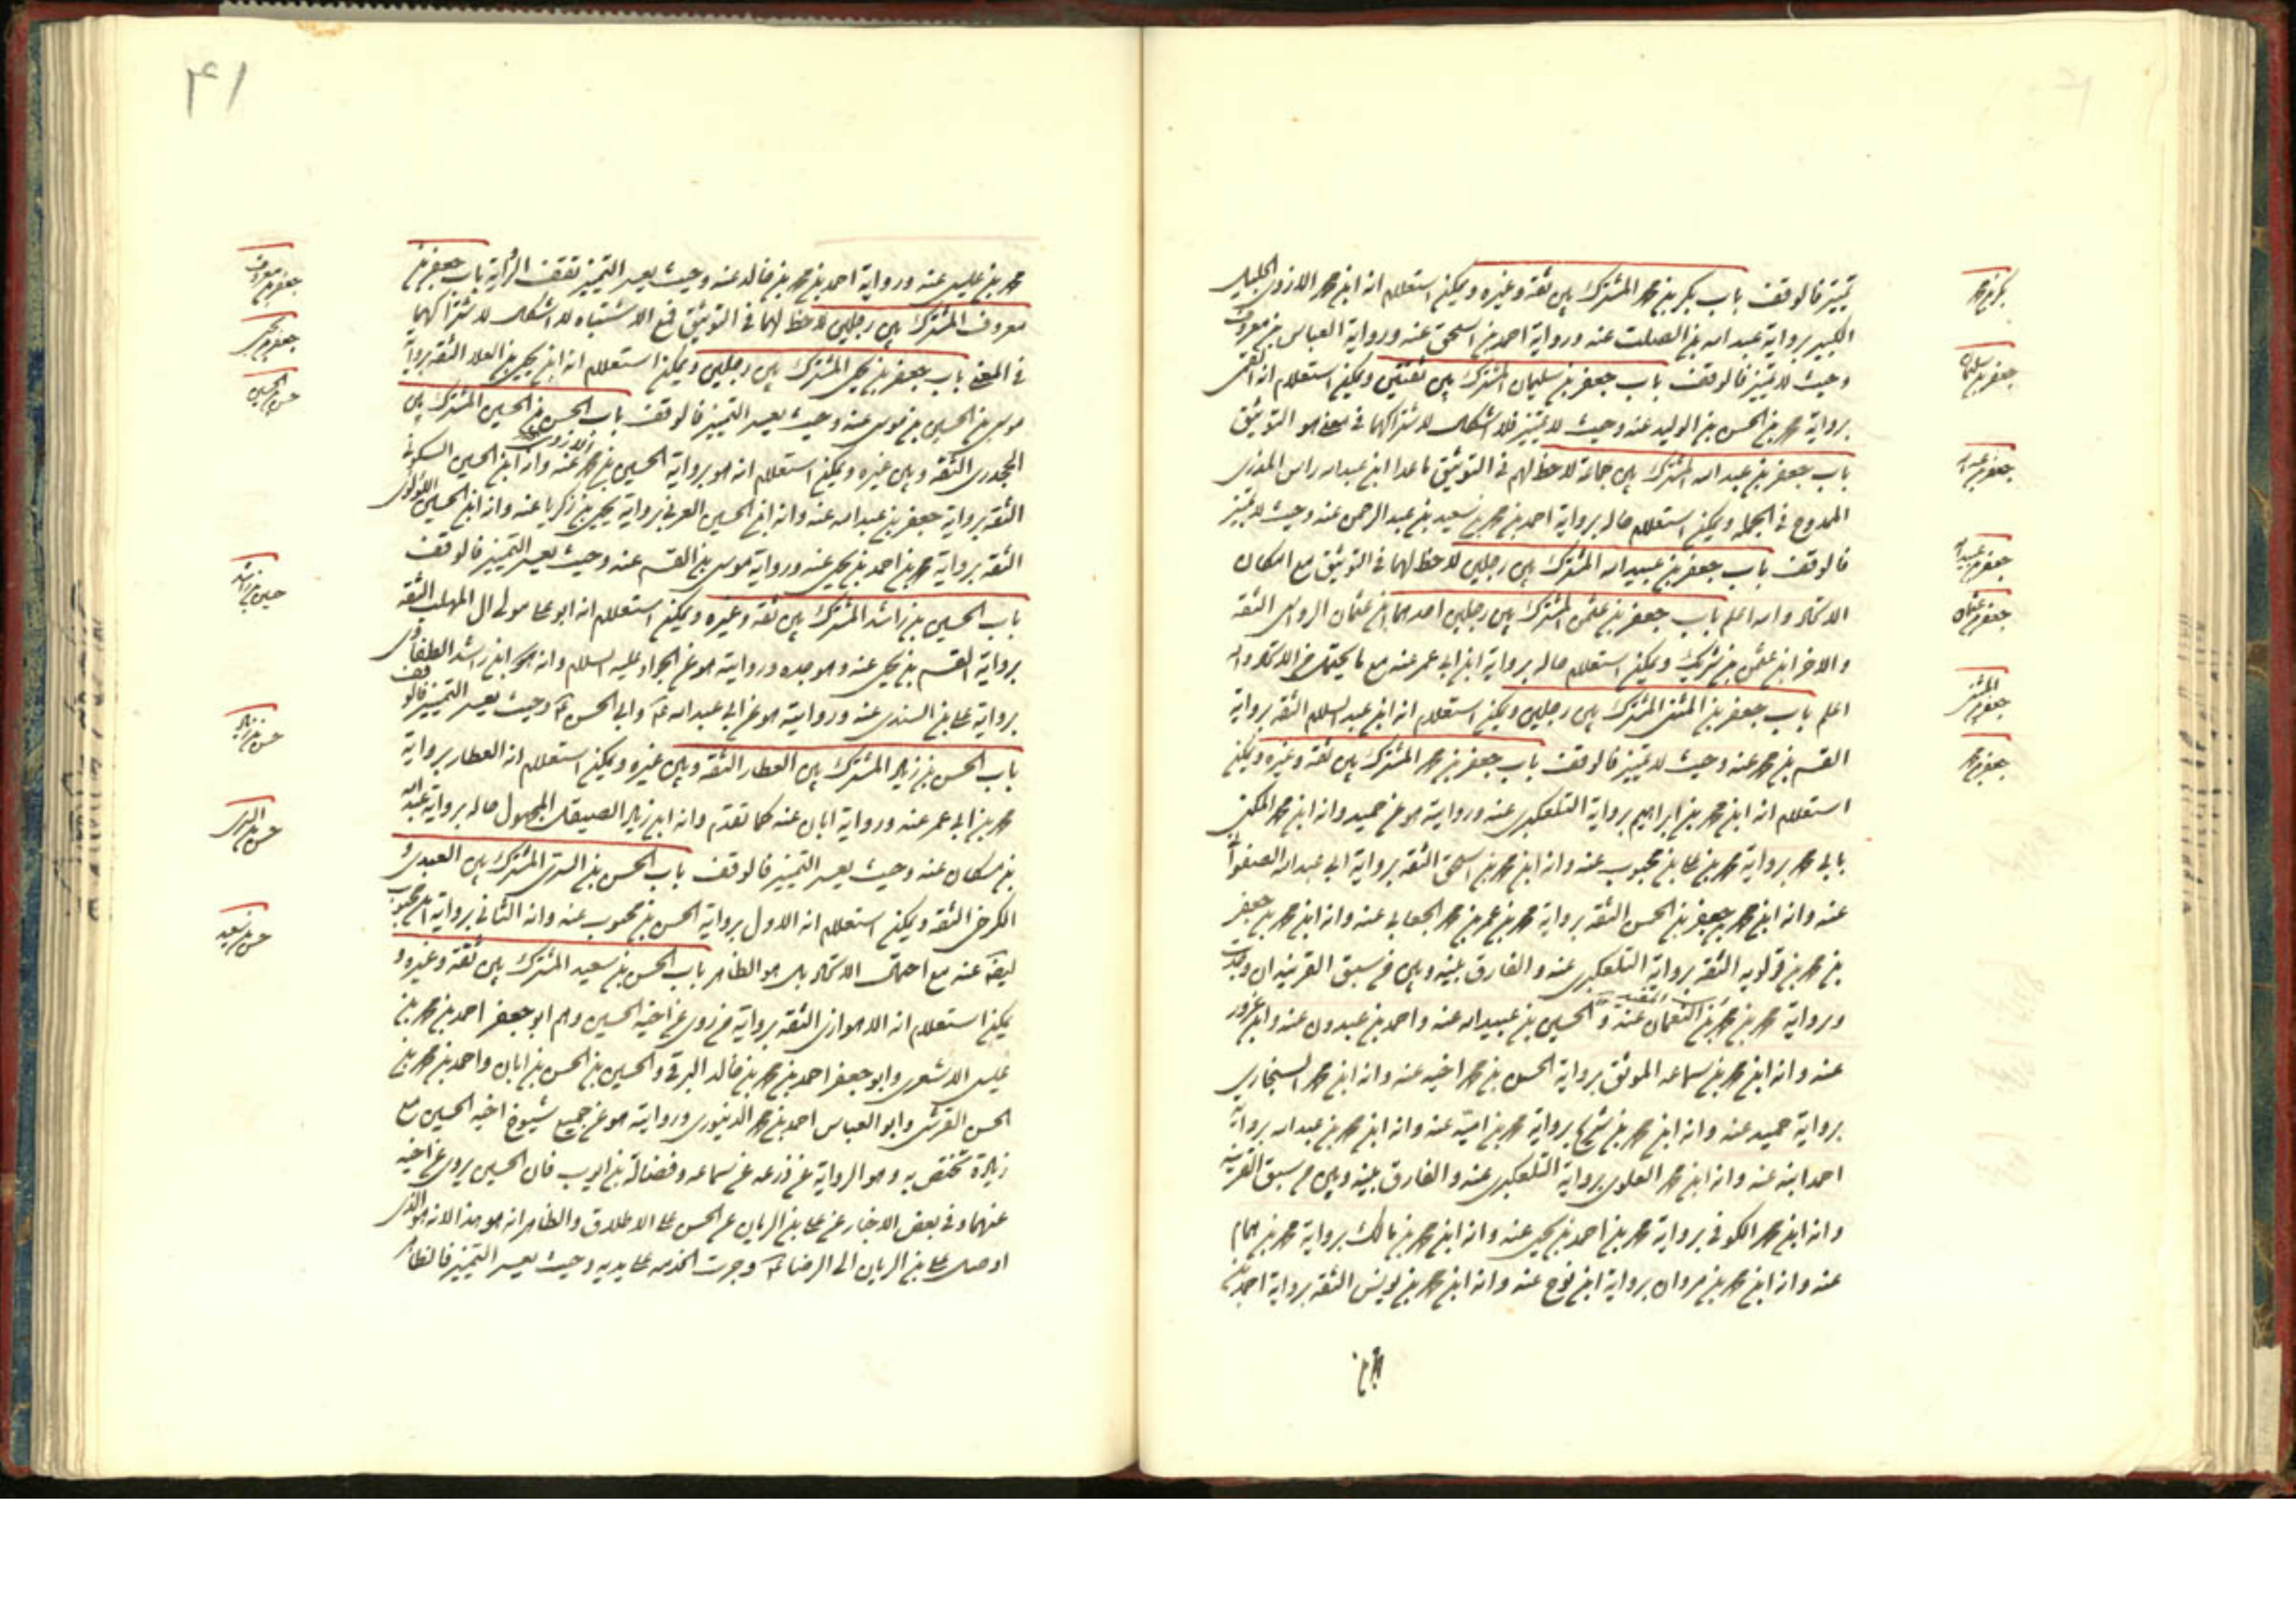 تميز فالوقف باب بكر بن محمد المشترك بين ثقة وغيره ويمكن استعلام انه ابن محمد الازدي الجليل
الكبير برواية عبد الله بن الصلت عنه ورواية احمد بن اسحق عنه ورواية العباس بن معروف
وحيث لا تميز فالوقف باب جعفر بن سليمان المشترك بين ثقتين ويمكن استعلام انه القمى
برواية محمد بن الحسن بن الوليد عنه وحيث لا يتميز فلا اشكال لاشتراكهما في معنى هو التوثيق
باب جعفر بن عبد الله المشترك بين جماعة لاحظ لهم في التوثيق ماعدا ابن عبد الله راس المذرى
الممدوح في الجملة ويمكن استعلام حاله برواية احمد بن محمد بن سعيد بن عبد الرحمن عنه وحيث لا تميز
فالوقف باب جعفر بن عبيد الله المشترك بين رجلين لاحظ لهما في التوثيق مع امكان
الاتحاد والله اعلم باب جعفر بن عثمن المشترك بين رجلين احدهما ابن عثمان الرواسى الثقة
والاخر ابن عثمن بن شريك ويمكن استعلام حاله برواية ابن ابي عمير عنه مع ما يحتمل من الاتحاد والله
اعلم باب جعفر بن المثنى المشترك بين رجلين ويمكن استعلام انه ابن عبد السلام الثقة برواية
القسم بن محمد عنه وحيث لا تميز فالوقف باب جعفر بن محمد المشترك بين ثقة وغيره ويمكن
استعلام انه ابن محمد بن ابراهيم برواية التلعكبرى عنه وروايته هو عن حميد وانه ابن محمد المكنى
بابي محمد برواية محمد بن علي بن محبوب عنه وانه ابن محمد بن اسحق الثقة برواية ابي عبد الله الصفواني
عنه وانه ابن محمد بن جعفر بن الحسن الثقة برواية محمد بن عمر بن محمد الجعابي عنه وانه ابن محمد بن جعفر
بن محمد بن قولويه الثقة برواية التلعكبرى عنه والفارق بينه وبين من سبق القرينه ان وجدت
وبرواية محمد بن محمد بن النعمان المفيد عنه و الحسين بن عبيد الله عنه واحمد بن عبدون عنه وابن عزور
عنه وانه ابن محمد بن سماعه الموثق برواية الحسن بن محمد اخيه عنه وانه ابن محمد السنجاري
برواية حميد عنه وانه ابن محمد بن شريح برواية محمد بن امية عنه وانه ابن محمد بن عبد الله برواية
احمد ابنه عنه وانه ابن محمد العلوى برواية التلعكبرى عنه والفارق بينه وبين من سبق القرينه
وانه ابن محمد الكوفي برواية محمد بن احمد بن يحيى عنه وانه ابن محمد بن مالك برواية محمد بن همام
عنه وانه ابن محمد بن مروان برواية ابن نوح عنه وانه ابن محمد بن يونس الثقة برواية احمد بن
محمد بن
بكر بن محمد
جعفر بن سليمان
جعفر بن عبد الله
جعفر بن عبيد الله
جعفر بن عثمان
جعفر بن المثنى
جعفر بن محمد
٤١
محمد بن عيسى عنه ورواية احمد بن محمد بن خالد عنه وحيث يعسر التميز تقف الرواية باب جعفر بن
معروف المشترك بين رجلين لاحظ لهما في التوثيق فمع الاشتباه لا اشكال لاشتراكهما
في المعنى باب جعفر بن يحيى المشترك بين رجلين ويمكن استعلام انه ابن يحيى بن العلا الثقة برواية
موسى بن الحسين بن موسى عنه وحيث يعسر التميز فالوقف باب الحسن بن الحسين المشترك بين
الجحدرى الثقة وبين غيره ويمكن استعلام انه هو برواية الحسين بن محمد الازدى عنه وانه ابن الحسين السكوني
الثقة برواية جعفر بن عبد الله عنه وانه ابن الحسين العرني برواية يحيى بن زكريا عنه وانه ابن الحسين اللؤلؤى
الثقة برواية محمد بن احمد بن يحيى عنه ورواية موسى بن القسم عنه وحيث يعسر التميز فالوقف
باب الحسين بن راشد المشترك بين ثقة وغيره ويمكن استعلام انه ابو علي مولى ال المهلب الثقة
برواية القسم بن يحيى عنه وهو جده وروايته هو عن الجواد عليه السلام وانه ابن راشد الطفاوى
برواية علي بن السندى عنه وروايته هو عن ابي عبد الله ع وابي الحسن ع وحيث يعسر التميز فالوقف
باب الحسن بن زياد المشترك بين العطار الثقة وبين غيره ويمكن استعلام انه العطار برواية
محمد بن ابي عمير عنه ورواية ابان عنه كما تقدم وانه ابن زياد الصيقل المجهول حاله برواية عبد الله
بن مسكان عنه وحيث يعسر التميز فالوقف باب الحسن بن السرى المشترك بين العبدى و
الكرخى الثقة ويمكن استعلام انه الاول برواية الحسن بن محبوب عنه وانه الثاني برواية ابن محبوب
ايضا عنه مع احتمال الاتحاد بل هو الظاهر باب الحسن بن سعيد المشترك بين ثقة وغيره و
يمكن استعلام انه الاهوازى الثقة برواية من روى عن اخيه الحسين وهم ابو جعفر احمد بن محمد بن
عيسى الاشعرى وابو جعفر احمد بن محمد بن خالد البرقي والحسين بن الحسن بن ابان واحمد بن محمد بن
الحسن القرشى وابو العباس احمد بن محمد الدينورى وروايته هو عن جميع شيوخ اخيه الحسين مع
زيادة تختص به وهو الرواية عن زرعه عن سماعه وفضالة بن ايوب فان الحسين يروى عن اخيه
عنهما وفي بعض الاخبار عن علي بن الريان عن الحسن علي الاطلاق والظاهر انه هو هذا لانه هو الذى
اوصل علي بن الريان الى الرضا ع وجرت الخدمه علي يديه وحيث يعسر التميز فالظاهر
جعفر بن معروف
جعفر بن يحيى
حسن بن الحسين
حسين بن راشد
حسن بن زياد
حسن بن السرى
حسن بن سعيد